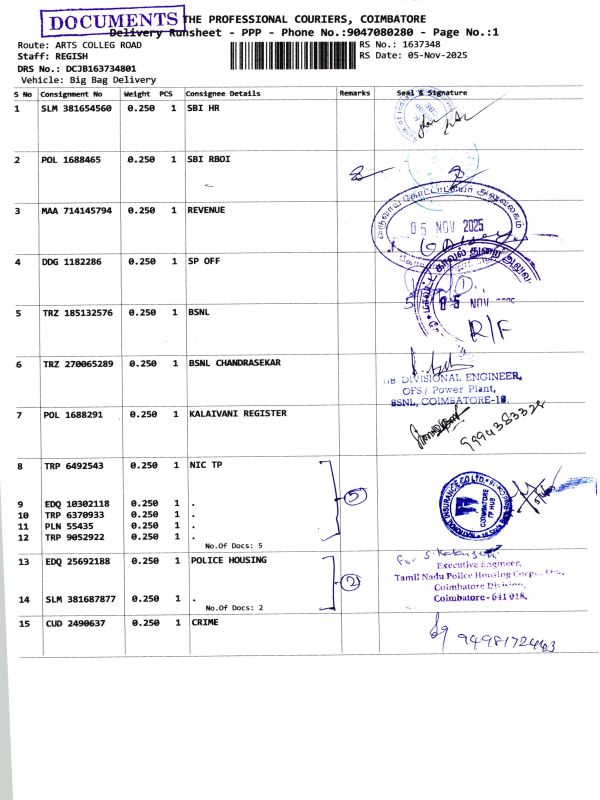 DOCUMENTS
THE PROFESSIONAL COURIERS, COIMBATORE
Delivery Runsheet - PPP - Phone No.:9047080280 - Page No.:1
Route: ARTS COLLEG ROAD
RS No.: 1637348
Staff: REGISH
RS Date: 05-Nov-2025
DRS No.: DCJB163734801
Vehicle: Big Bag Delivery
S No Consignment No Weight PCS Consignee Details Remarks Seal & Signature
1 SLM 381654560 0.250 1 SBI HR
2 POL 1688465 0.250 1 SBI RBOI
3 MAA 714145794 0.250 1 REVENUE
05 NOV 2025
4 DDG 1182286 0.250 1 SP OFF
மாவட்ட காவல் துறை அலுவல
05 NOV 2025
5 TRZ 185132576 0.250 1 BSNL
R/F
6 TRZ 270065289 0.250 1 BSNL CHANDRASEKAR
DIVISIONAL ENGINEER,
OFS / Power Plant,
BSNL, COIMBATORE-18.
7 POL 1688291 0.250 1 KALAIVANI REGISTER
8 TRP 6492543 0.250 1 NIC TP
5
COIMBATORE
TP HUB
9 EDQ 10302118 0.250 1 .
10 TRP 6370933 0.250 1 .
11 PLN 55435 0.250 1 .
12 TRP 9052922 0.250 1 .
No.Of Docs: 5
13 EDQ 25692188 0.250 1 POLICE HOUSING
2
For
Executive Engineer,
Tamil Nadu Police Housing
Coimbatore Division,
Coimbatore - 641 018.
14 SLM 381687877 0.250 1 .
No.Of Docs: 2
15 CUD 2490637 0.250 1 CRIME